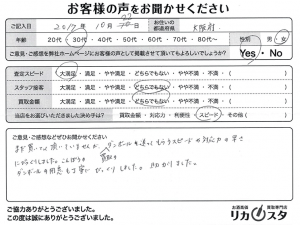 お客様の声をお聞かせください
ご記入日 2017年 10月 22日 お住いの都道府県 大阪府
年齢 20代・30代・40代・50代・60代・70代・80代〜 性別 男・女
ご意見・ご感想を弊社ホームページにお客様の声として掲載させて頂いてもよろしいでしょうか? Yes・No
査定スピード 大満足 ・ 満足 ・ やや満足 ・ どちらでもない ・ やや不満 ・ 不満 ・ その他( )
スタッフ接客 大満足 ・ 満足 ・ やや満足 ・ どちらでもない ・ やや不満 ・ 不満 ・ その他( )
買取金額 大満足 ・ 満足 ・ やや満足 ・ どちらでもない ・ やや不満 ・ 不満 ・ その他( )
当店をお選びいただきました決め手は? 買取金額 ・ 対応力 ・ 利便性 ・ スピード ・ その他( )
ご意見・ご感想などぜひお聞かせください
まだ買って頂いていませんが、ダンボールを送ってもらうスピードや対応力の早さ
にびっくりしました。こんばかりの買取の
ダンボールの用意も丁寧でびっくりしました。助かりました。
ご協力ありがとうございました。
この度は誠にありがとうございました。
お酒高価買取専門店
リカスタ